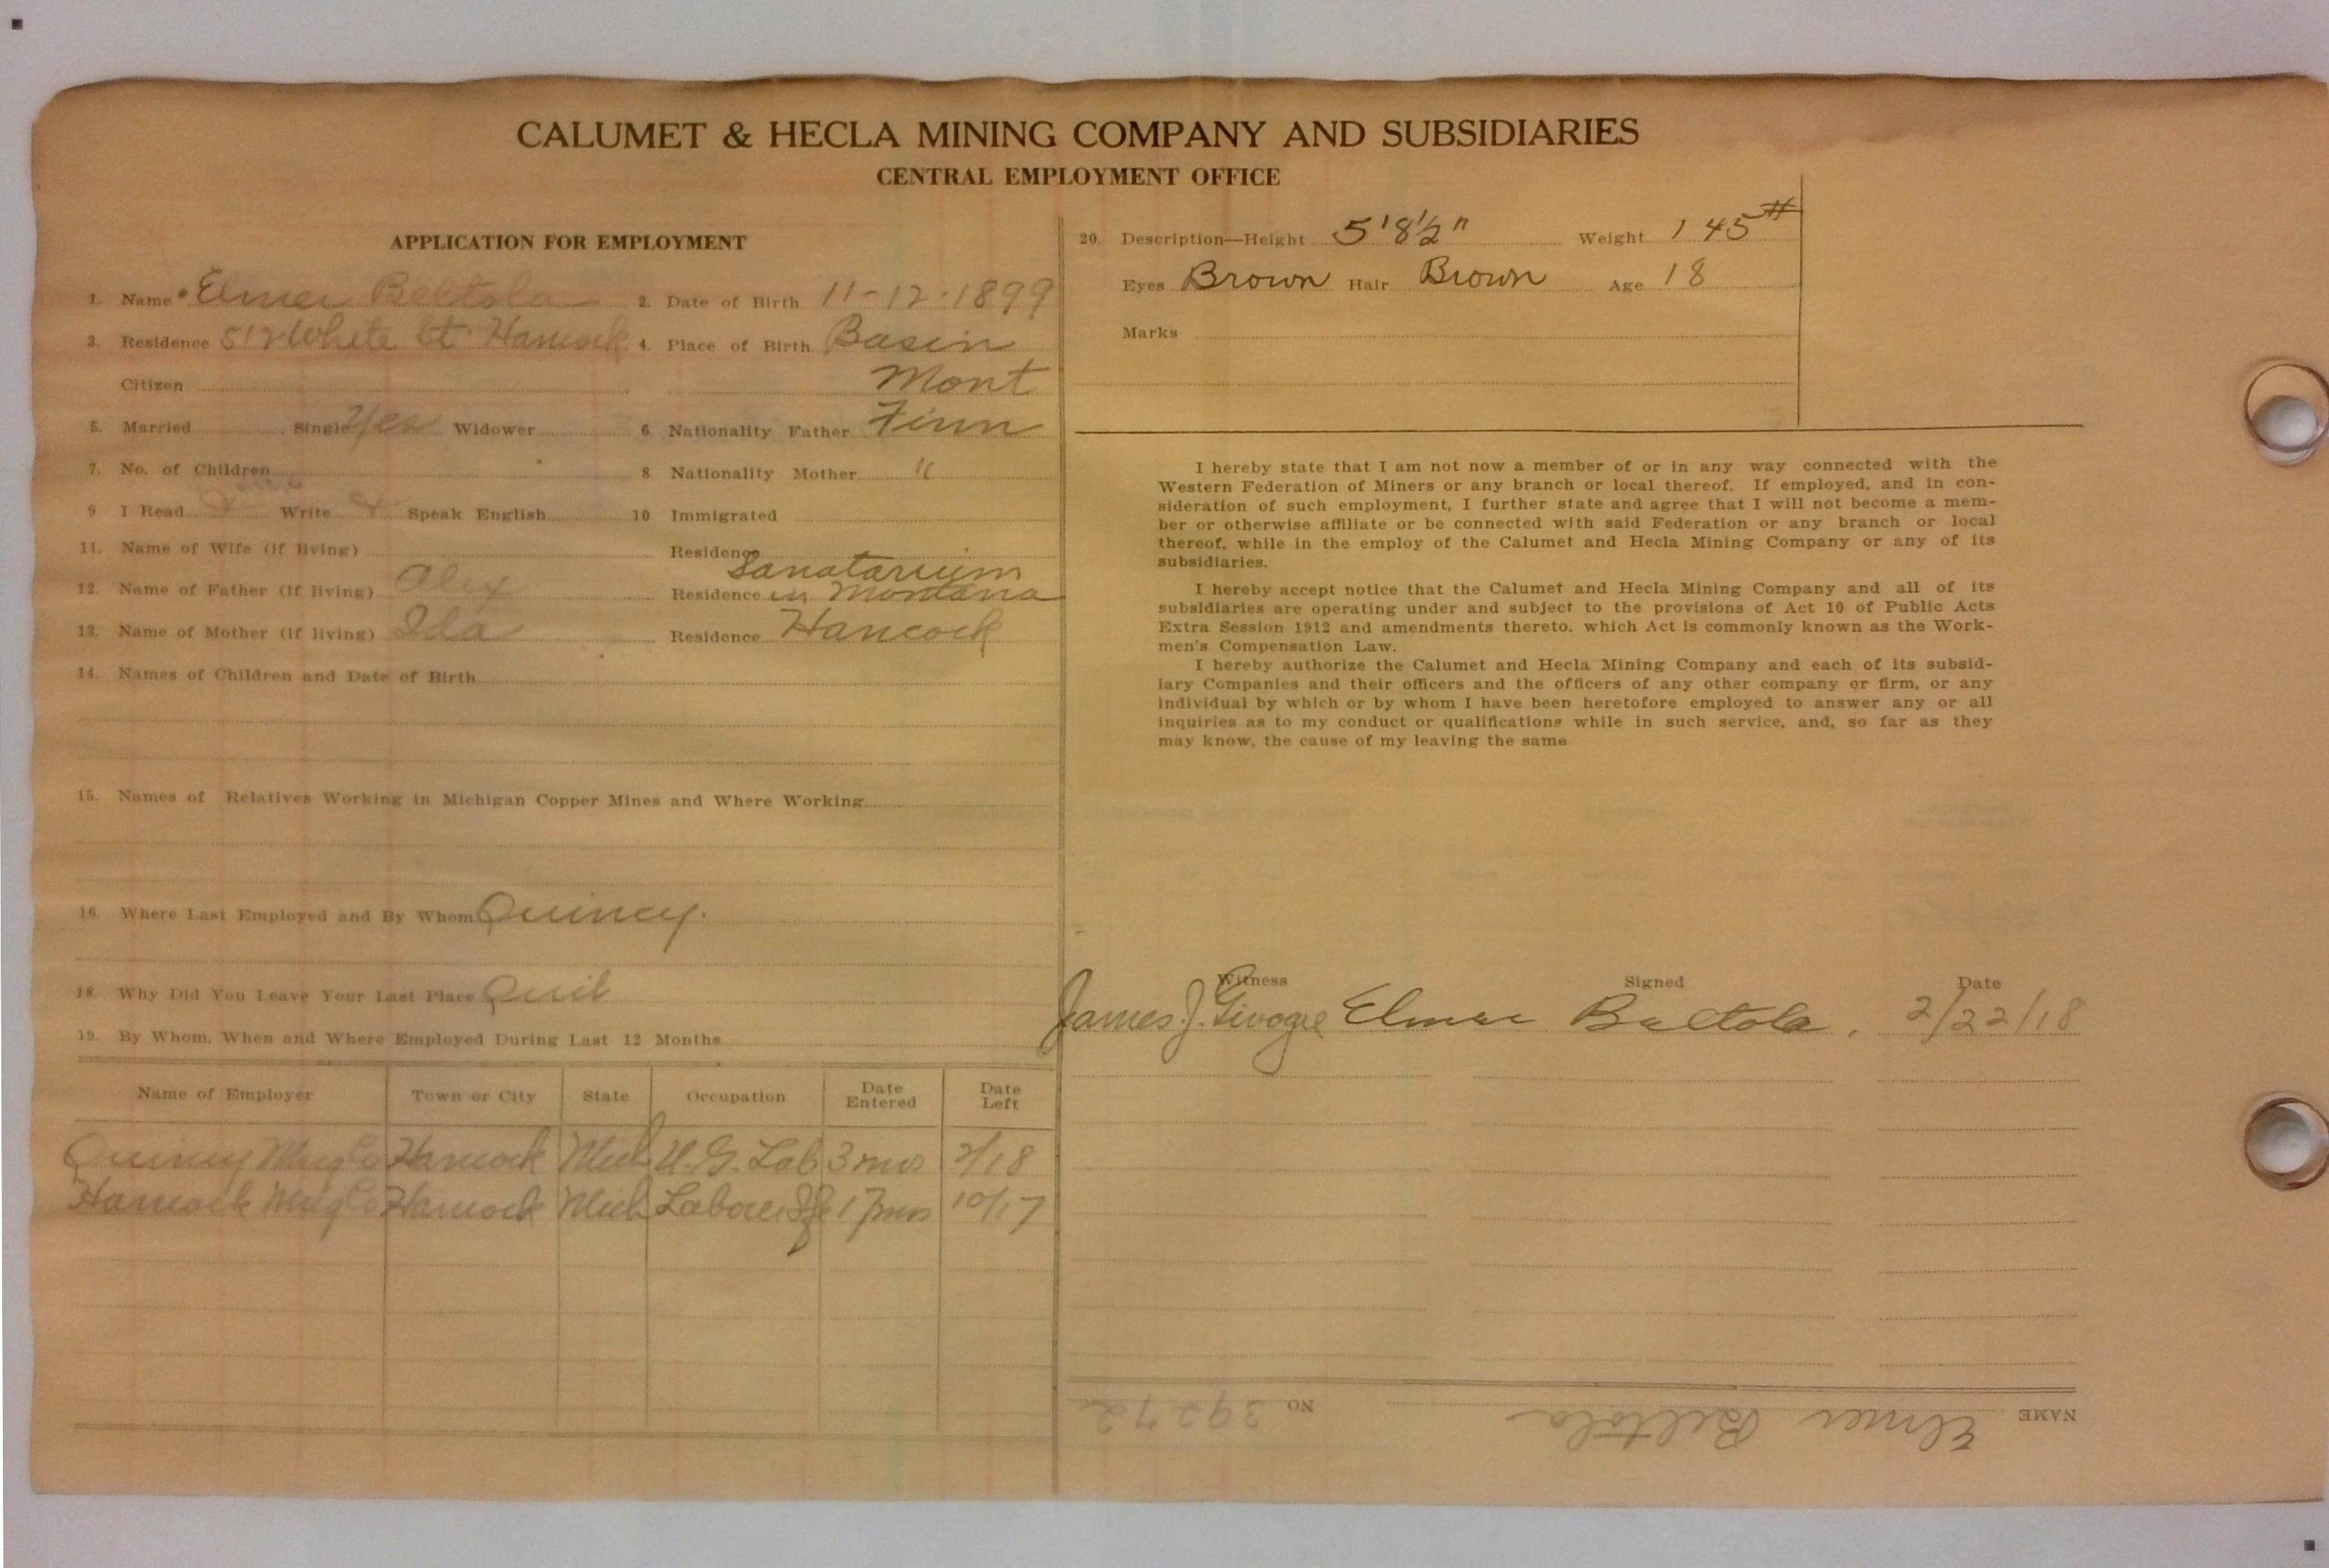 CALUMET & HECLA MINING COMPANY AND SUBSIDIARIES
CENTRAL EMPLOYMENT OFFICE
APPLICATION FOR EMPLOYMENT
1. Name Elmer Beltola 2. Date of Birth 11-12-1899
3. Residence 512 White St Hancock 4. Place of Birth Basin
Citizen Mont
5. Married Single Yes Widower 6. Nationality Father Finn
7. No. of Children 8 Nationality Mother "
9 I Read Write Speak English 10 Immigrated
11. Name of Wife (if living) Residence
Sanatarium
12. Name of Father (if living) Alex Residence in Montana
13. Name of Mother (if living) Ida Residence Hancock
14. Names of Children and Date of Birth
15. Names of Relatives Working in Michigan Copper Mines and Where Working
16. Where Last Employed and By Whom Quincy.
18. Why Did You Leave Your Last Place Quit
19. By Whom, When and Where Employed During Last 12 Months
Name of Employer Town or City State Occupation Date Entered Date Left
Quincy Mng Co Hancock Mich U.G. Lab 3 mos 2/18
Hancock Mng Co Hancock Mich Laborer Sfc 17 mos 10/17
20. Description—Height 5'8½" Weight 145#
Eyes Brown Hair Brown Age 18
Marks
I hereby state that I am not now a member of or in any way connected with the
Western Federation of Miners or any branch or local thereof. If employed, and in con-
sideration of such employment, I further state and agree that I will not become a mem-
ber or otherwise affiliate or be connected with said Federation or any branch or local
thereof, while in the employ of the Calumet and Hecla Mining Company or any of its
subsidiaries.
I hereby accept notice that the Calumet and Hecla Mining Company and all of its
subsidiaries are operating under and subject to the provisions of Act 10 of Public Acts
Extra Session 1912 and amendments thereto, which Act is commonly known as the Work-
men's Compensation Law.
I hereby authorize the Calumet and Hecla Mining Company and each of its subsid-
iary Companies and their officers and the officers of any other company or firm, or any
individual by which or by whom I have been heretofore employed to answer any or all
inquiries as to my conduct or qualifications while in such service, and, so far as they
may know, the cause of my leaving the same
Witness Signed Date
James J. Elmer Beltola. 2/22/18
NAME Elmer Beltola NO 39272